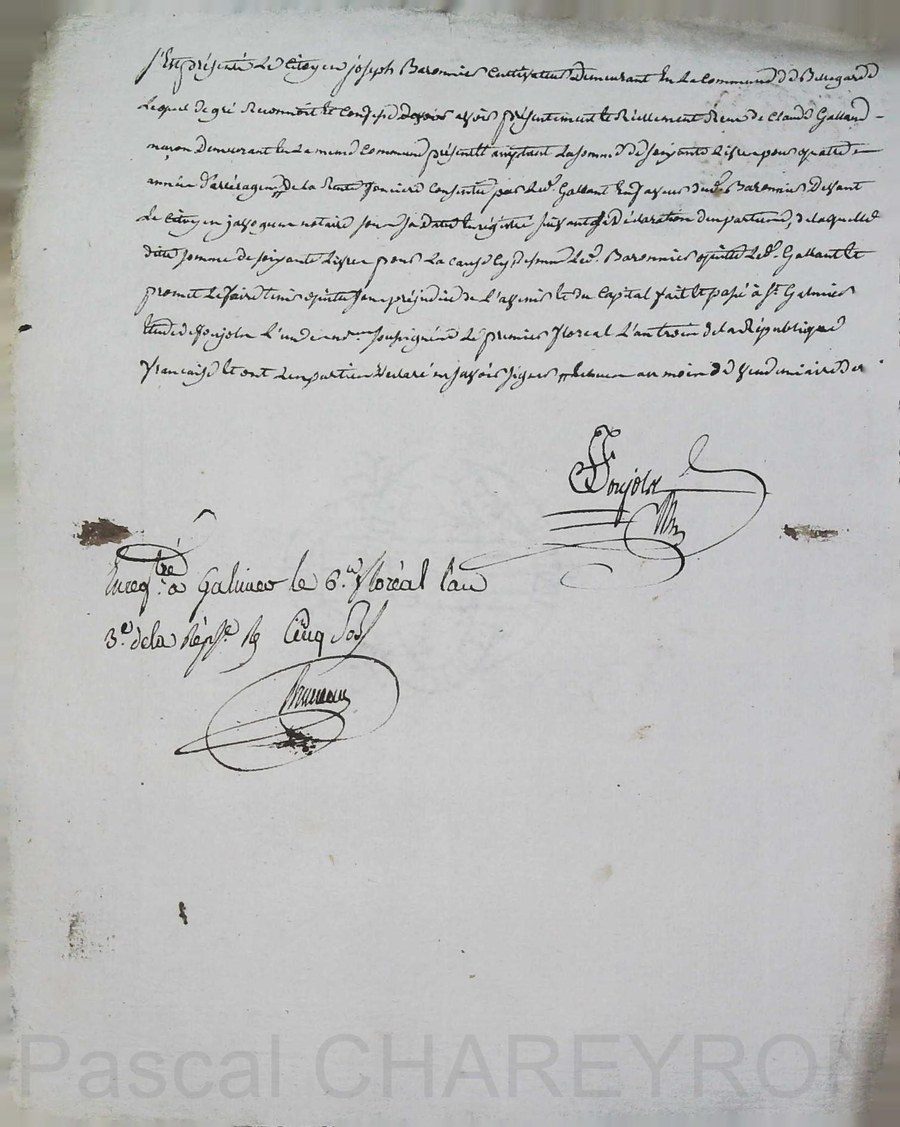 S'Est présenté Le Citoyen joseph Baronnier Cultivateur Demeurant En La Commune de Bellegarde
Lequel de gré Reconnoit et Confesse avoir présentement et Réellement Reçu de Claude Galland
maçon Demeurant En La meme Commune présent et acceptant La somme de soixante Livres pour quatre
année d'arrérages de la Rente fonciere Consentie par Led. Gallant En faveur dud. Baronnier Devant
Le Citoyen notaire sous sa Date Enregistré suivant la Déclaration des parties, de laquelle
ditte somme de soixante Livres pour La cause Cy dessus Led. Baronnier quitte Led. Gallant et
promet Le faire tenir quitte sans préjudice de L'avenir et du Capital fait et passé à St. Galmier
Etude de Ponjola L'un des not. soussignés Le premier floreal L'an trois de la République
française Et ont Les parties Declaré ne savoir signer au mois de vendemiaire
Ponjola
Nre
Enregtré. a Galmier le 6. floréal l'an
3e. de la Répque. R Cinq Sols
Pascal CHAREYRON